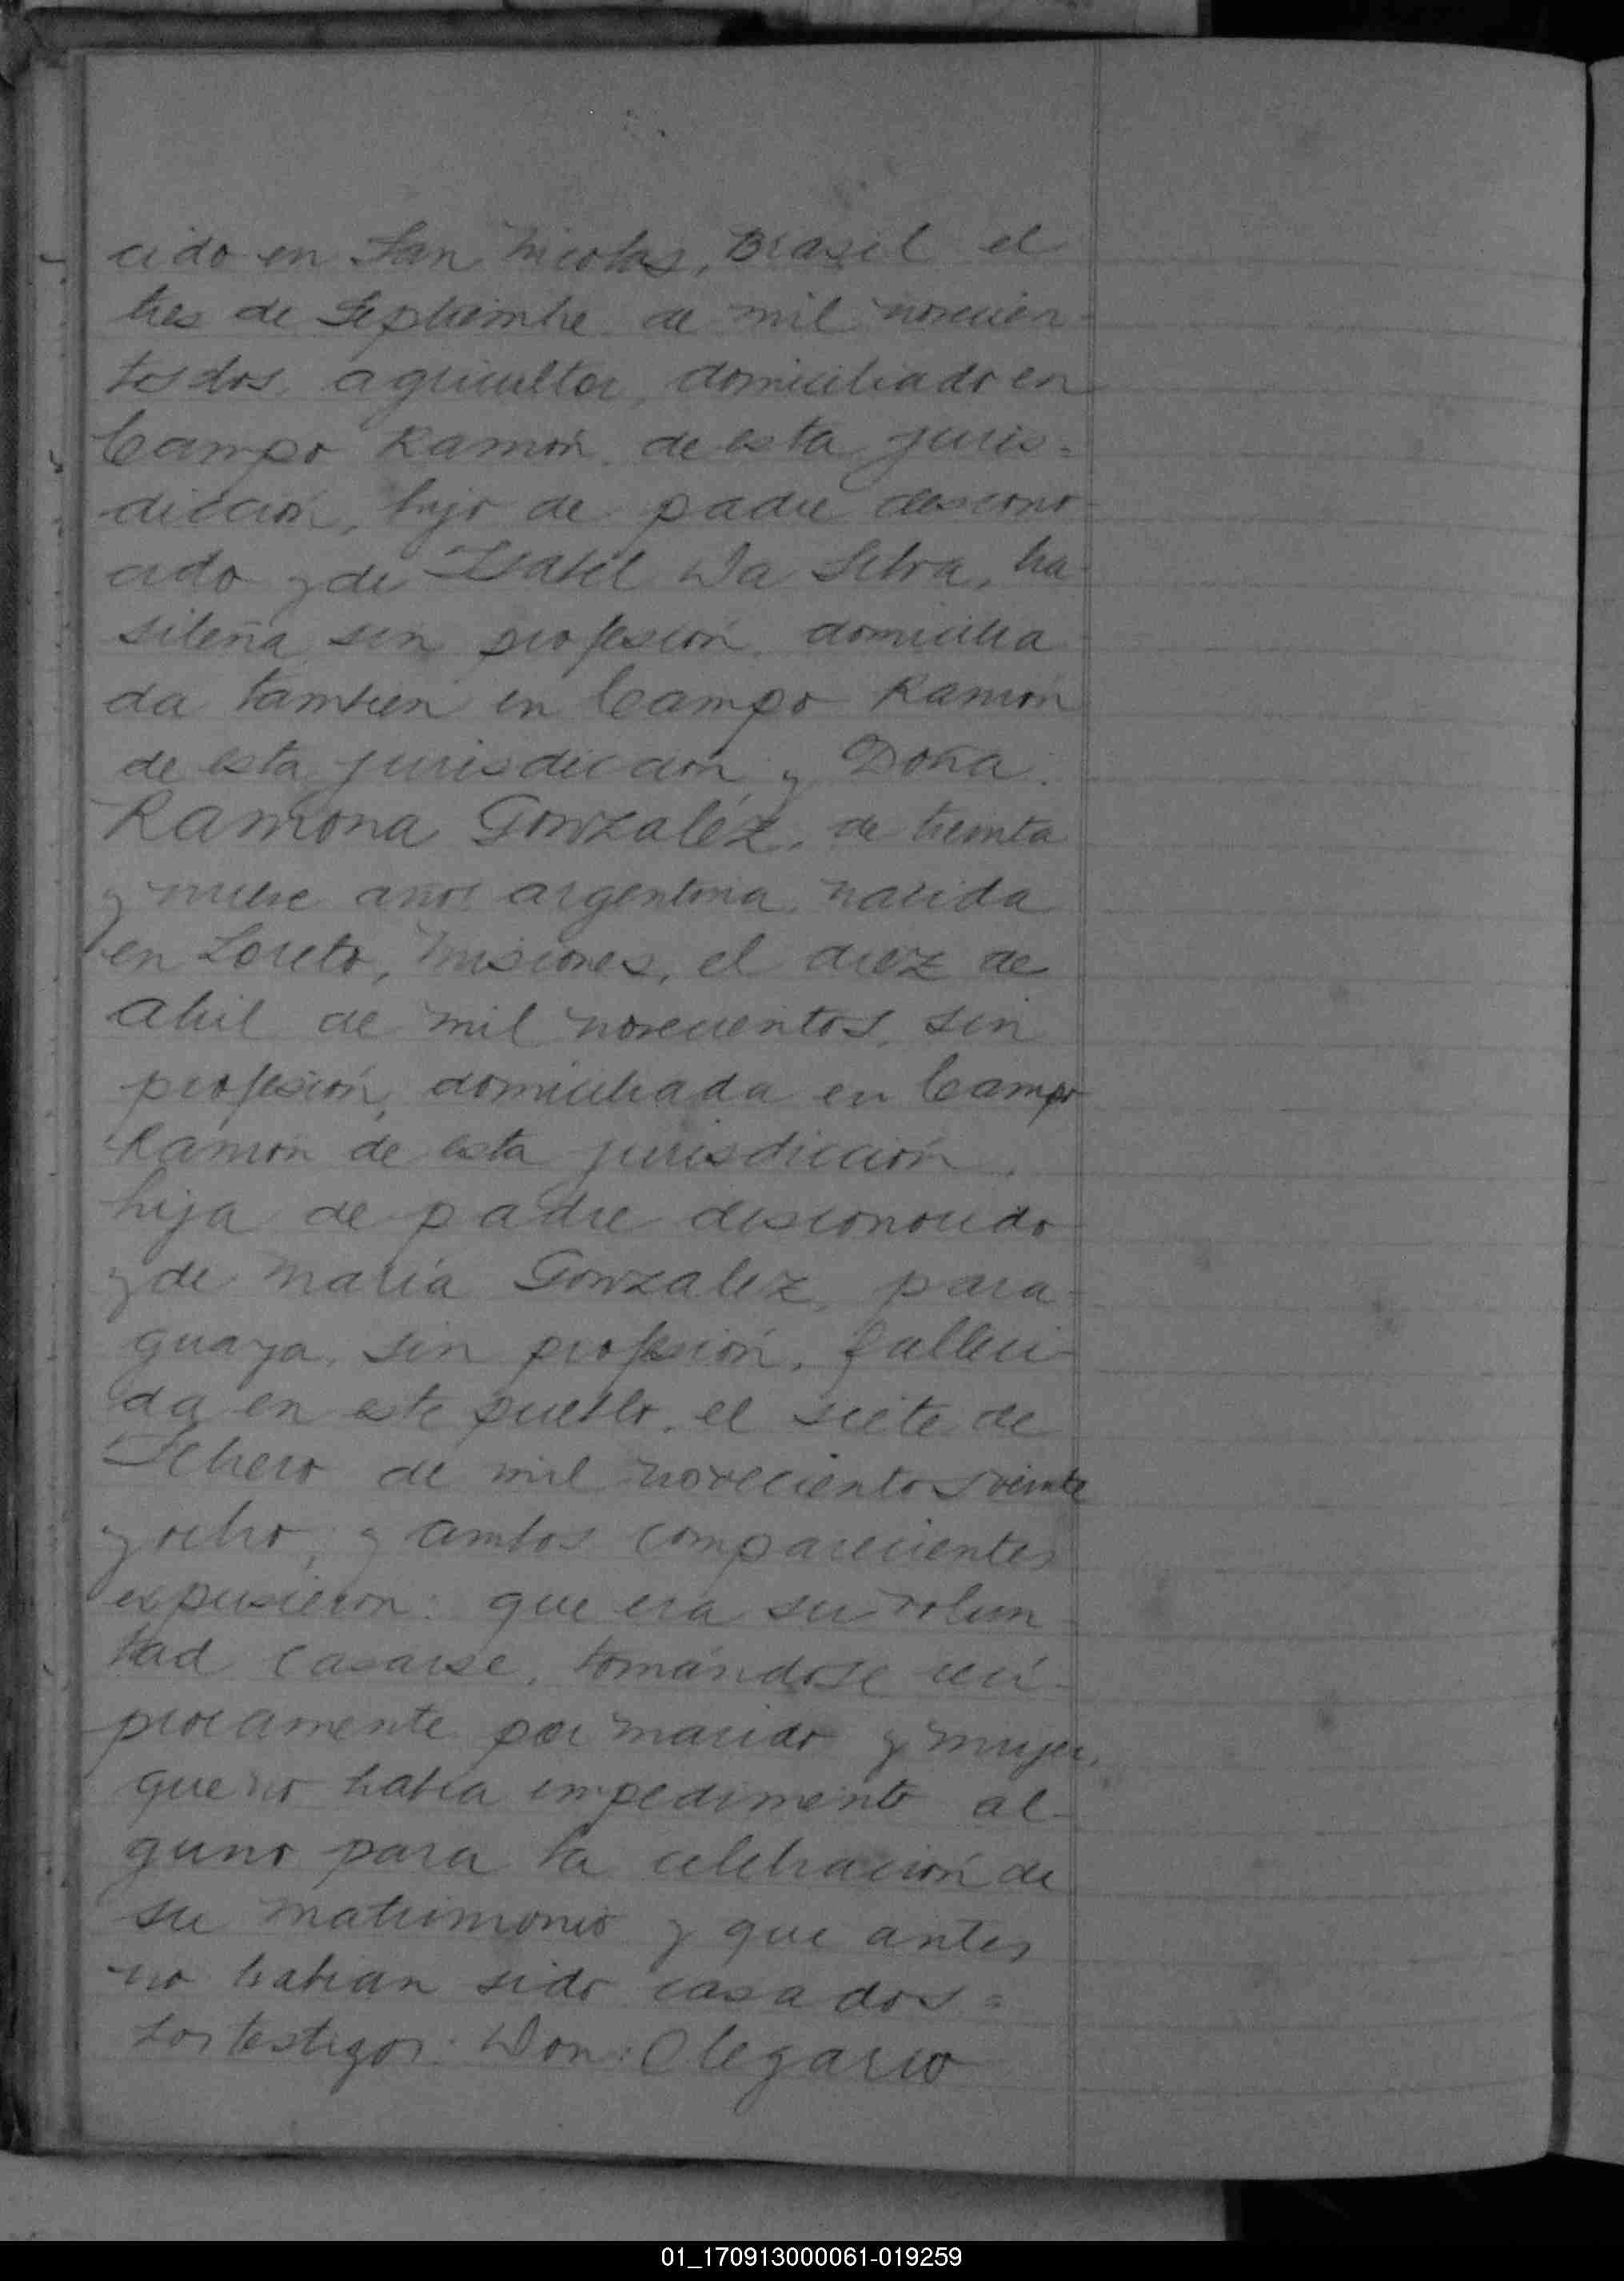 cido en San Nicolas, Brasil el
tres de Septiembre de mil novecien-
tos dos, agricultor, domiciliado en
Campo Ramón de esta juris=
dicción, hijo de padre descono-
cido y de Isabel Da Silva, bra-
sileña sin profesión, domicilia-
da tambien en Campo Ramón
de esta jurisdicción y Doña:
Ramona González, de treinta
y nueve años argentina, nacida
en Loreto, Misiones, el diez de
Abril de mil novecientos, sin
profesión, domiciliada en Campo
Ramón de esta jurisdicción,
hija de padre desconocido
y de María Gonzalez, para-
guaya, sin profesión, falleci-
da en este pueblo, el siete de
Febrero de mil novecientos veinte
y ocho; y ambos comparecientes
expusieron: que era su volun-
tad casarse, tomándose recí-
procamente por marido y mujer,
que no habia impedimento al-
guno para la celebración de
su matrimonio y que antes
no habian sido casados=
Los testigos: Don: Olegario
01_170913000061-019259